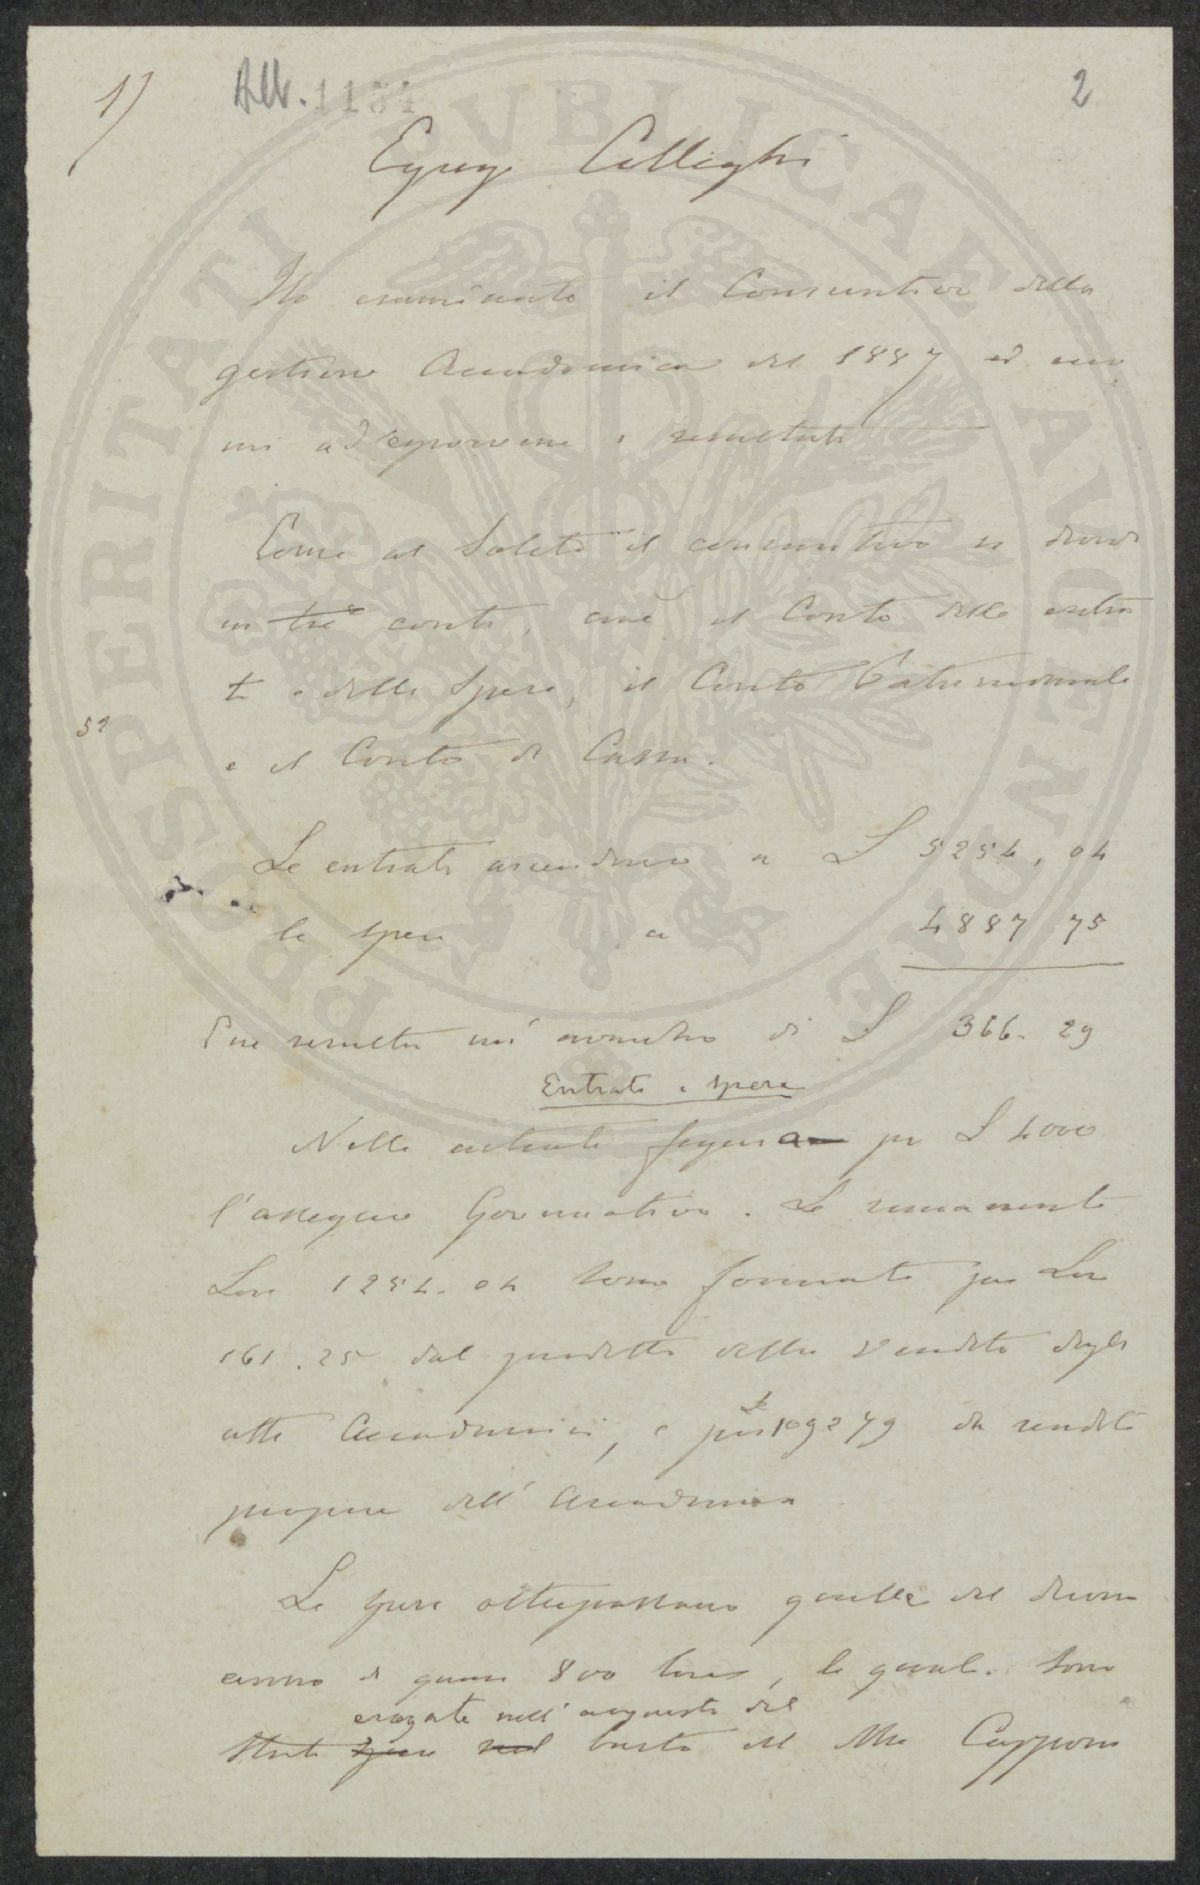 1)
Alb. 1131
2
Egregi Colleghi
Ho esaminato il Consuntivo della
gestione Accademica del 1887 ed ecco
mi ad esporvene i resultati
Come al solito il consuntivo si divide
in tre conti, cioè il Conto delle entra
te e delle spese, il Conto Patrimoniale
52
e il Conto di Cassa.
Le entrate ascendono a L 5254,04
le spese a 4887 75
E ne resulta un avanzo di L 366.29
Entrate e spese
Nelle entrate figura per L 4000
l'assegno Governativo. Le rimanenti
Lire 1254.04 sono formate per Lire
161.25 dal prodotto della vendita degli
atti Accademici, e per L 1092 79 da rendite
proprie dell'Accademia
Le spese oltrepassano quelle del decorso
anno di quasi 800 lire, le quali sono
erogate nell'acquisto del
state spese nel busto del Mse Capponi
PROSPERITATI PUBLICAE AUGENDAE